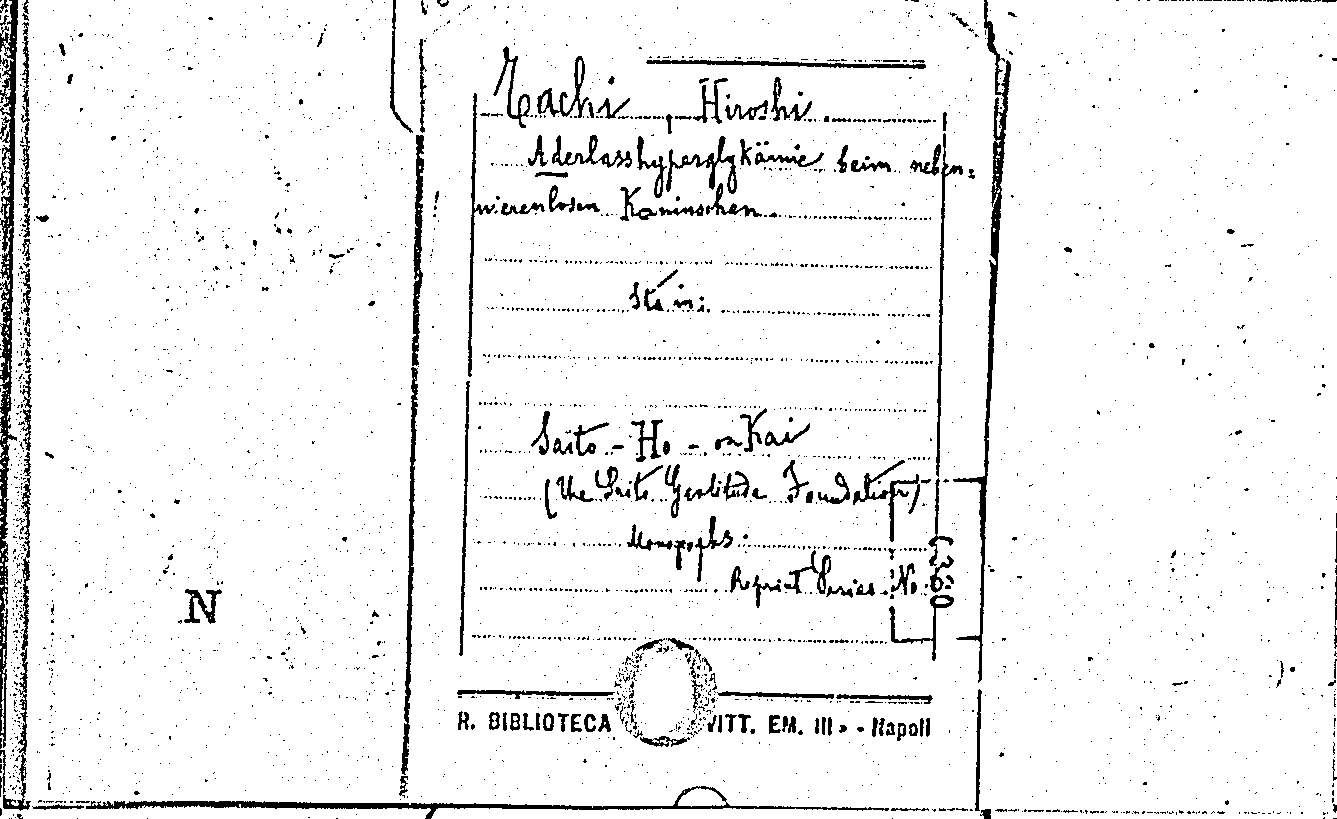 Tachi, Hiroshi.
Aderlasshyperglykämie beim neben=
nierenlosen Kaninschen.
Saito - Ho - on Kai
(The Saito Gratitude Foundation)
Reprint Series. No. 360
N
R. BIBLIOTECA VITT. EM. III» - Napoli